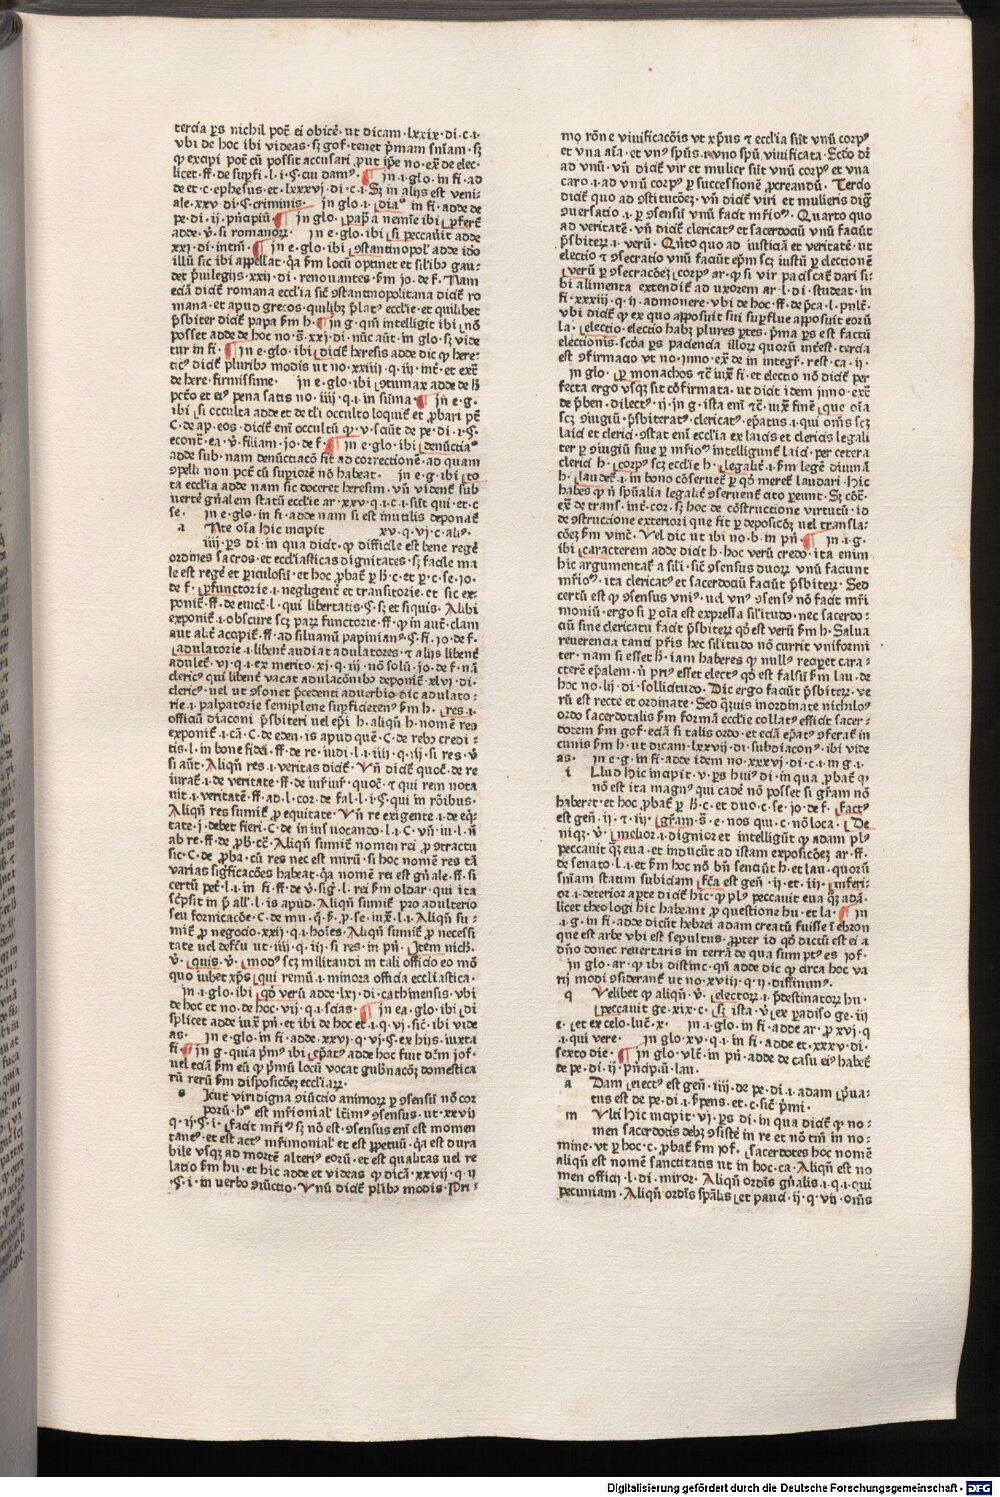 tercia ꝑs nichil pot̄ ei obicē· ut dicam·lxxix·di·c·i·
vbi de hoc ibi videas·sꝫ gof·tenet p̄mam snīam·sꝫ
ꝙ excipi pot̄ cū possit accusari ꝓut ip̄e no·ex̄ de elec·
licet·ff·de suꝑfi·l·i·§·cui dam⁹· ¶ jn·i·glo·in fi·ad
de et·c·ephesus·et·lxxxvj·di·c·i·Sꝫ in alijs est veni-
ale·xxv·di·§·criminis· jn glo·i·dia⁹ in fi·adde de
pe·di·ij·pn̄cipiū ¶ jn glo·papa nemīe ibi p̄fert̄
adde·v̄·si romanoꝝ· jn e·glo·ibi si peccauīt adde
xxi·di·intm̄· ¶ jn e·glo·ibi ꝯstantinopol' adde ido
illū sic ibi appellat·q̄a ẜm locū optinet et silib⁹ gau-
det p̄uilegijs·xxij·di·renouantes·ẜm jo·de f· Nam
eciā dicit̄ romana ecclīa sic̄ ꝯstantinopolitana dicit̄ ro
mana·et apud grecos·quilibꝫ p̄lat⁹ ecclīe·et quilibet
p̄sbiter dicit̄ papa ẜm h· ¶ jn g·qm̄ intelligit ibi nō
posset adde de hoc no·s̄·xxj·di·nūc aūt·in glo·sꝫ vide
tur in fi· ¶ jn e·glo·ibi dicit̄ heresis adde dic ꝙ here-
tic⁹ dicit̄ pluribꝫ modis ut no·xxiiij·q·iij·int̄·et exr̄
de here·firmissime· jn e·glo·ibi ꝯtumax adde de ꝉ
pctō et ei⁹ pena satis no·iiij·q·i·in sūma ¶ jn e·g·
ibi si occulta adde et de tl'i occulto loquit̄ et ꝓbari pt̄
C·de ap·eos·dicit̄ eni occultū ꝙ·v·sciūt de pe·di·i·§·
econt̄·ea·v̄·filiam·jo·de f· ¶ jn e·glo·ibi denūcia⁹
adde sub·nam denūciacō fit ad correctionē·ad quam
ꝯpelli non pot̄ cū suꝑiorē nō habeat· jn e·g·ibi to
ta ecclīa adde nam sic doceret heresim·vn̄ vident̄ sub
uertē gn̄alem statū ecclīe ar·xxv·q·i·c·i·sūt qui·et·c
se· jn e·glo·in fi·adde nam si est īnutilis deponat̄
a Nte oīa hic incipit xv·q·vi·c·ali⁹·
iiij·ꝑs di·in qua dicit·ꝙ difficile est bene regē
ordines sacros·et ecclīasticas dignitates·sꝫ facile ma
le est regē et ꝑiculosū·et hoc ꝓbat̄ ꝑ ꝉ·c·et ꝑ·c·se·jo·
de f· ꝑfunctorie·i·negligent̄ et transitorie·et sic ex-
ponit̄·ff·de euict̄·l·qui libertatis·§·sꝫ et si quis· Alibi
exponit̄·i·obscure scꝫ paꝝ functorie·ff·ꝙ in aut̄·clam
aut alit̄ accipit̄·ff·ad siluanū papinian⁹·§·fi·jo·de f·
adulatorie·i·libent̄ audiat adulatores·⁊ alijs libent̄
adulet̄·vj·q·i·ex merito·xj·q·iij·nō solū·jo·de f·nā
cleric⁹ qui libent̄ vacat adulacōnibꝫ deponit̄·xlvj·di·
cleric⁹·uel ut ꝯsonet p̄cedenti aduerbio dic adulato-
rie·i·palpatorie semiplene suꝑficietenꝰ ẜm h· res·i·
officiū diaconi p̄sbiteri uel ep̄i h·aliqn̄ h·nomē res
exponit̄·i·cā·C·de eden·is apud quē·C·de rebꝫ credi-
tis·l·in bone fidei·ff·de re·iudi·l·i·iiij·q·ij·si res·v̄
si aūt· Aliqn̄ res·i·veritas dicit̄· Vn̄ dicit̄ quoc̄·de re
iurat̄·i·de veritate·ff·de iur̄iur̄·quoc̄·⁊ qui rem nota
uit·i·veritatē·ff·ad·l·cor·de fal·l·i·§·qui in rōibus·
Aliqn̄ res sumit̄ ꝓ equitate· Vn̄ re exigente·i·de eq̄-
tate·j·debet fieri·C·de in ius uocando·l·i·C·vn̄·in·l·n̄
ab re·ff·de ꝓb·tc̄· Aliqn̄ sumit̄ nomen rei ꝓ ꝯtractu
sic·C·de ꝓba·cū res nec est mirū·si hoc nomē res tā
varias sigficacōes habeat·q̄a nomē rei est gn̄ale·ff·si
certū pet̄·l·i·in fi·ff·de v̄·sig̃·l·rei ẜm oldar·qui ita
sc̄psit in p̄ all'·l·is apud· Aliqn̄ sumit̄ pro adulterio
seu fornicacōe·C·de mu·q̄·p̄·p·se·iux̄·l·i· Aliqn̄ su-
mit̄ ꝓ negocio·xxij·q·i·hoīes· Aliqn̄ sumit̄ ꝓ necessi
tate uel defcū ut·iiij·q·iij·si res·in pn̄· Item nich·
v̄· quis·v̄· mod⁹ scꝫ militandi in tali officio eo mō
quo iubet xp̄s qui remū·i·minora officia ecclīastica·
jn·i·glo·ibi qd̄ verū adde·lxj·di·cathinensis·vbi
de hoc et no·de hoc·vij·q·i·scias· ¶ jn ea·glo·ibi di
splicet adde iux̄ pn̄·et ibi de hoc et·i·q·vj·sic̄·ibi vide
as· jn e·glo·in fi·adde·xxvj·q·vj·§·ex hijs·iuxta
fi· ¶ jn g·quia p̄m⁹ ibi ep̄at⁹ adde hoc fuit dc̄m jof·
uel eciā ẜm eū ꝙ p̄mū locū vocat gub̄nacōꝫ domestica
rū rerū ẜm disposicōeꝫ ecclīaꝝ·
s Icut viridigna ꝯiūctio animoꝝ ꝑ ꝯsensū nō cor
porū·h⁹ est mr̄ionial' lc̄im⁹ ꝯsensus·ut·xxvij
q·ij·§·i· facit mr̄i⁹ sꝫ nō est·ꝯsensus enī est momen
tane⁹·et est act⁹ mr̄imonial' et est ꝑpetuū·q̄a est dura
bile vsqꝫ ad mortē alteri⁹ eorū·et est qualitas uel re
latio ẜm hu·et hic adde et videas ꝙ dicā·xxvij·q·ij
§·i·in verbo ꝯiūctio· Vnū dicit̄ plibꝫ modis· Pri-
mo rōne viuificacōis vt xp̄us ⁊ ecclīa sūt vnū corp⁹
et vna aīa·et vn⁹ sp̄us·i·vno sp̄ū viuificata· Scd̄o dr̄
ad vnū·vn̄ dicit̄ vir et mulier sūt vnū corp⁹ et vna
caro·i·ad vnū corp⁹ ꝑ successionē ꝓcreandū· Tercio
dicit̄ quo ad ꝯstitucōeꝫ·vn̄ dicit̄ viri et mulieris dig̃
ꝯuersatio·i·ꝑ ꝯsensū vnū facit mr̄io⁹· Quarto quo
ad veritatē·vn̄ dicit̄ clericat⁹ et sacerdociū vnū faciūt
p̄sbiterꝝ·i·verū· Qn̄to quo ad iusticiā et veritatē·ut
electio ⁊ ꝯsecratio vnū faciūt ep̄m scꝫ iustū ꝑ electionē
verū ꝑ ꝯsecracōeꝫ corp⁹ ar·ꝙ si vir paciscat̄ dari si-
bi alimenta extendit̄ ad uxorem ar·l·di·studeat·in
fi·xxxiij·q·ij·admonere·vbi de hoc·ff·de p̄ca·l·pnlt̄·
vbi dicit̄ ꝙ ex quo apposuit sui suꝑflue apposuit eorū
la· electio·electio habꝫ plures ꝑtes·p̄ma ꝑs est factū
electionis·scd̄a ꝑs paciencia illorꝝ quorū int̄est·tercia
est ꝯfirmacio vt no·jnno·ex̄ de in integr̄·rest·ca·ij·
jn glo· ꝑ monachos tc̄·iux̄ fi·et electio nō dicit̄ per
fecta ergo vsqꝫ sit cōfirmata·ut dicit idem jnno·exr̄·
de p̄ben·dilect⁹·ij·jn g·ista enī tc̄·iux̄ finē que oīa
scꝫ ꝯiugiū·p̄sbiterat⁹·clericat⁹·ep̄atus·i·qui om̄s scꝫ
laici et clerici·ꝯstat enī ecclīa ex laicis et clericis legali
ter ꝑ ꝯiugiū siue ꝑ mr̄io⁹ intelligunt̄ laici·per cetera
clerici h· corp⁹ scꝫ ecclīe h· legalit̄·i·ẜm legē diuinā
h· laudet̄·i·in bono cōseruet̄ ꝑ qd̄ meret̄ laudari·hic
habes ꝙ n̄ sp̄ualia legalit̄ ꝯseruent̄ cito ꝑeunt·Sꝫ cōt̄·
ex̄ de trans·int̄·cor·sꝫ hoc de cōstructione virtutū·id
de ꝯstruccione exteriori que fit ꝑ deposicōꝫ uel transla-
cōeꝫ ẜm vinc̄· Vel dic ut ibi no·b·in pn̄· ¶ jn·i·g·
ibi caracterem adde dicit h·hoc verū credo·ita enim
hic argumentat̄ a sili·sic̄ ꝯsensus duorꝝ vnū faciunt
mr̄io⁹·ita clericat⁹ et sacerdociū faciūt p̄sbiterꝝ· Sed
certū est ꝙ ꝯsensus vni⁹·ud vn⁹ ꝯsens⁹ nō facit mr̄i
moniū·ergo si ꝑ oīa est expressa sil'itudo·nec sacerdo-
ciū sine clericatu facit p̄sbiterꝝ qd̄ est verū ẜm h·Salua
reuerencia tanti pr̄is hec silitudo nō currit vniformi
ter·nam si esset ꝉ·iam haberes ꝙ null⁹ recipet cara-
cterē ep̄alem·n̄ pri⁹ esset elect⁹ qd̄ est falsū ẜm lau·de
hoc no·lij·di·sollicitudo· Dic ergo faciūt p̄sbiterꝝ·ve
rū est recte et ordinate· Sed q̄ꝫuis inordinate nichilo⁹
ordo sacerdotalis ẜm formā ecclīe collat⁹ efficit sacer-
dotem ẜm gof·eciā si talis ordo·et eciā ep̄at⁹ ꝯferat̄ in
cunis ẜm h·ut dicam·lxxvij·di·subdiacon⁹·ibi vide
as· jn e·g·in fi·adde idem no·xxxvj·di·c·i·in g·i·
i Llud hic incipit·v·ꝑs hui⁹ di·in qua ꝓbat̄ ꝙ
nō est ita magn⁹ qui cadē nō posset si gr̄am nō
haberet·et hoc ꝓbat̄ ꝑ ꝉ·c·et duo·c·se·jo·de f· fact⁹
est gen̄·ij·⁊·iij· gr̄am·s̄·e·nos qui·c·nō loca· De
niqꝫ·v̄· melior·i·dignior et intelligūt ꝙ adam pl⁹
peccauit q̄ꝫ eua·et inducūt ad istam exposicōeꝫ ar·ff·
de senato·l·i·et ẜm hoc nō bn̄ senciūt h·et lau·quorū
snīam statim subiciam fc̄a est gen̄·ij·et·iij· inferi-
or·i·deterior a ꝑte dicit̄ hic·ꝙ pl⁹ peccauit eua q̄ꝫ adā·
licet theologi hic habeant ꝓ questione hu·et la· ¶ jn
i·g·in fi·adde dicūt hebrei adam creatū fuisse ī ebron
que est arbe vbi est sepultus·ꝓpter id qd̄ dictū est ei a
dn̄o donec reuertaris in terrā de qua sumpt⁹ es jof·
jn glo·ar·ꝙ ibi distinc·qn̄ adde dic ꝙ circa hoc va
rij modi ꝯsiderant̄ ut no·xviij·q·ij·diffinim⁹·
q Velibet ꝙ aliqn̄·v̄· electorꝝ·i·p̄destinatorꝝ hu·
peccauit ge·xix·c· sꝫ ista·v̄· ex paradiso ge·iij
e· et ex celo·luc̄·x· jn·i·glo·in fi·adde ar·ꝓ xvj·q
i·qui vere· jn glo·xv·q·i·in fi·adde et·xxxv·di·
sexto die· ¶ jn glo·vlt̄·in pn̄·adde de casu ei⁹ habet̄
de pe·di·ij·pn̄cip̄ū·lau·
a Dam eiect⁹ est gen̄·iiij·de pe·di·i·adam p̄ua-
tus est de pe·di·i·ꝑpens·et·c·sic̄ p̄mi·
m Vlti hic incipit·vj·ꝑs di·in qua dicit̄ ꝙ no-
men sacerdotis debꝫ ꝯsistē in re et nō tm̄ in no-
mine·vt ꝑ hoc·c·ꝓbat̄ ẜm jof· sacerdotes hoc nomē
aliqn̄ est nomē sanctitatis ut in hoc·ca· Aliqn̄ est no
men officij·l·di·miror· Aliqn̄ ordīs gn̄alis·i·q·i·qui
pecuniam· Aliqn̄ ordīs sp̄alis et pauci·ij·q·vij·om̄s
Digitalisierung gefördert durch die Deutsche Forschungsgemeinschaft - DFG